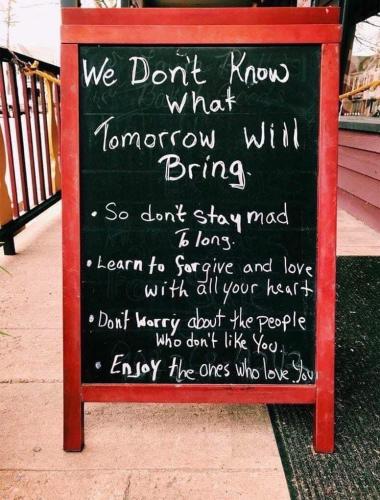 We Don't Know
what
Tomorrow Will
Bring.
• So don't stay mad
To long.
• Learn to forgive and love
with all your heart
• Don't Worry about the people
Who don't like You.
• Enjoy the ones who love You